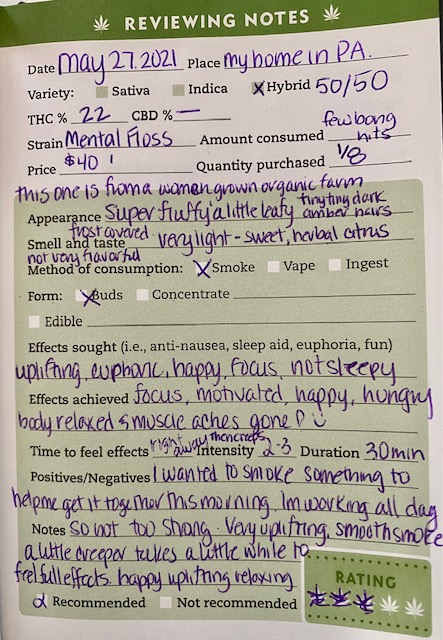 REVIEWING NOTES
Date May 27.2021 Place my home in PA.
Variety: Sativa Indica Hybrid 50/50
THC % 22 CBD % — few bong
Strain Mental Floss Amount consumed hits
Price $40 Quantity purchased 1/8
this one is from a women grown organic farm
Appearance Super fluffy a little leafy tiny tiny dark amber hairs
frost covered
Smell and taste very light - sweet, herbal citrus
not very flavorful
Method of consumption: Smoke Vape Ingest
Form: Buds Concentrate
Edible
Effects sought (i.e., anti-nausea, sleep aid, euphoria, fun)
uplifting, euphoric, happy, focus, not sleepy
Effects achieved focus, motivated, happy, hungry
body relaxed & muscle aches gone
Time to feel effects right away then creeps Intensity 2-3 Duration 30 min
Positives/Negatives I wanted to smoke something to
help me get it together this morning. Im working all day
Notes So not too strong. Very uplifting, smooth smoke
a little creeper takes a little while to
feel full effects. happy uplifting relaxing
RATING
Recommended Not recommended